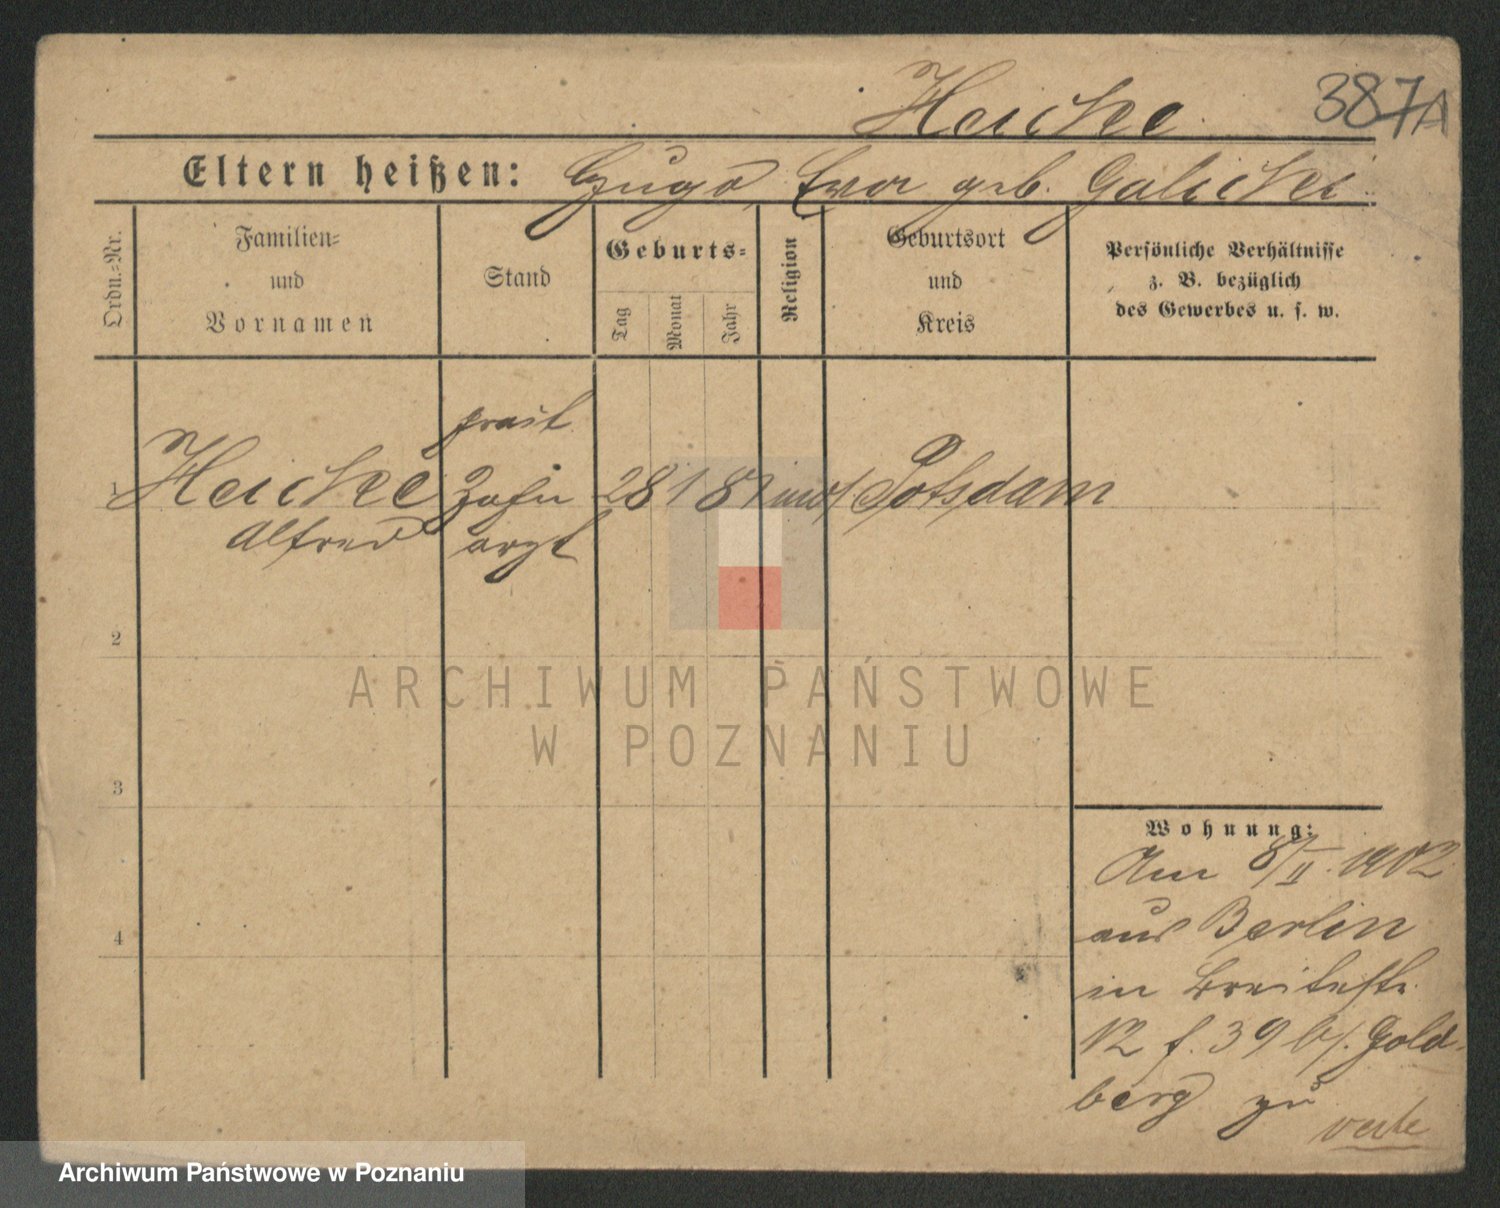 Heicke
387A
Eltern heißen: Hugo, Eva geb. Galicke
Ordn.=Nr.
Familien=
und
Vornamen
Stand
Geburts=
Tag
Monat
Jahr
Religion
Geburtsort
und
Kreis
Persönliche Verhältnisse
z. B. bezüglich
des Gewerbes u. s. w.
prait
1 Heicke Zahn 28 1 81 mos Potsdam
Alfred arzt
2
ARCHIWUM PAŃSTWOWE
W POZNANIU
3
Wohnung:
Am 8/II. 1902
4
aus Berlin
in Breitestr.
12 f. 39 b/. Gold-
berg zu
verte
Archiwum Państwowe w Poznaniu